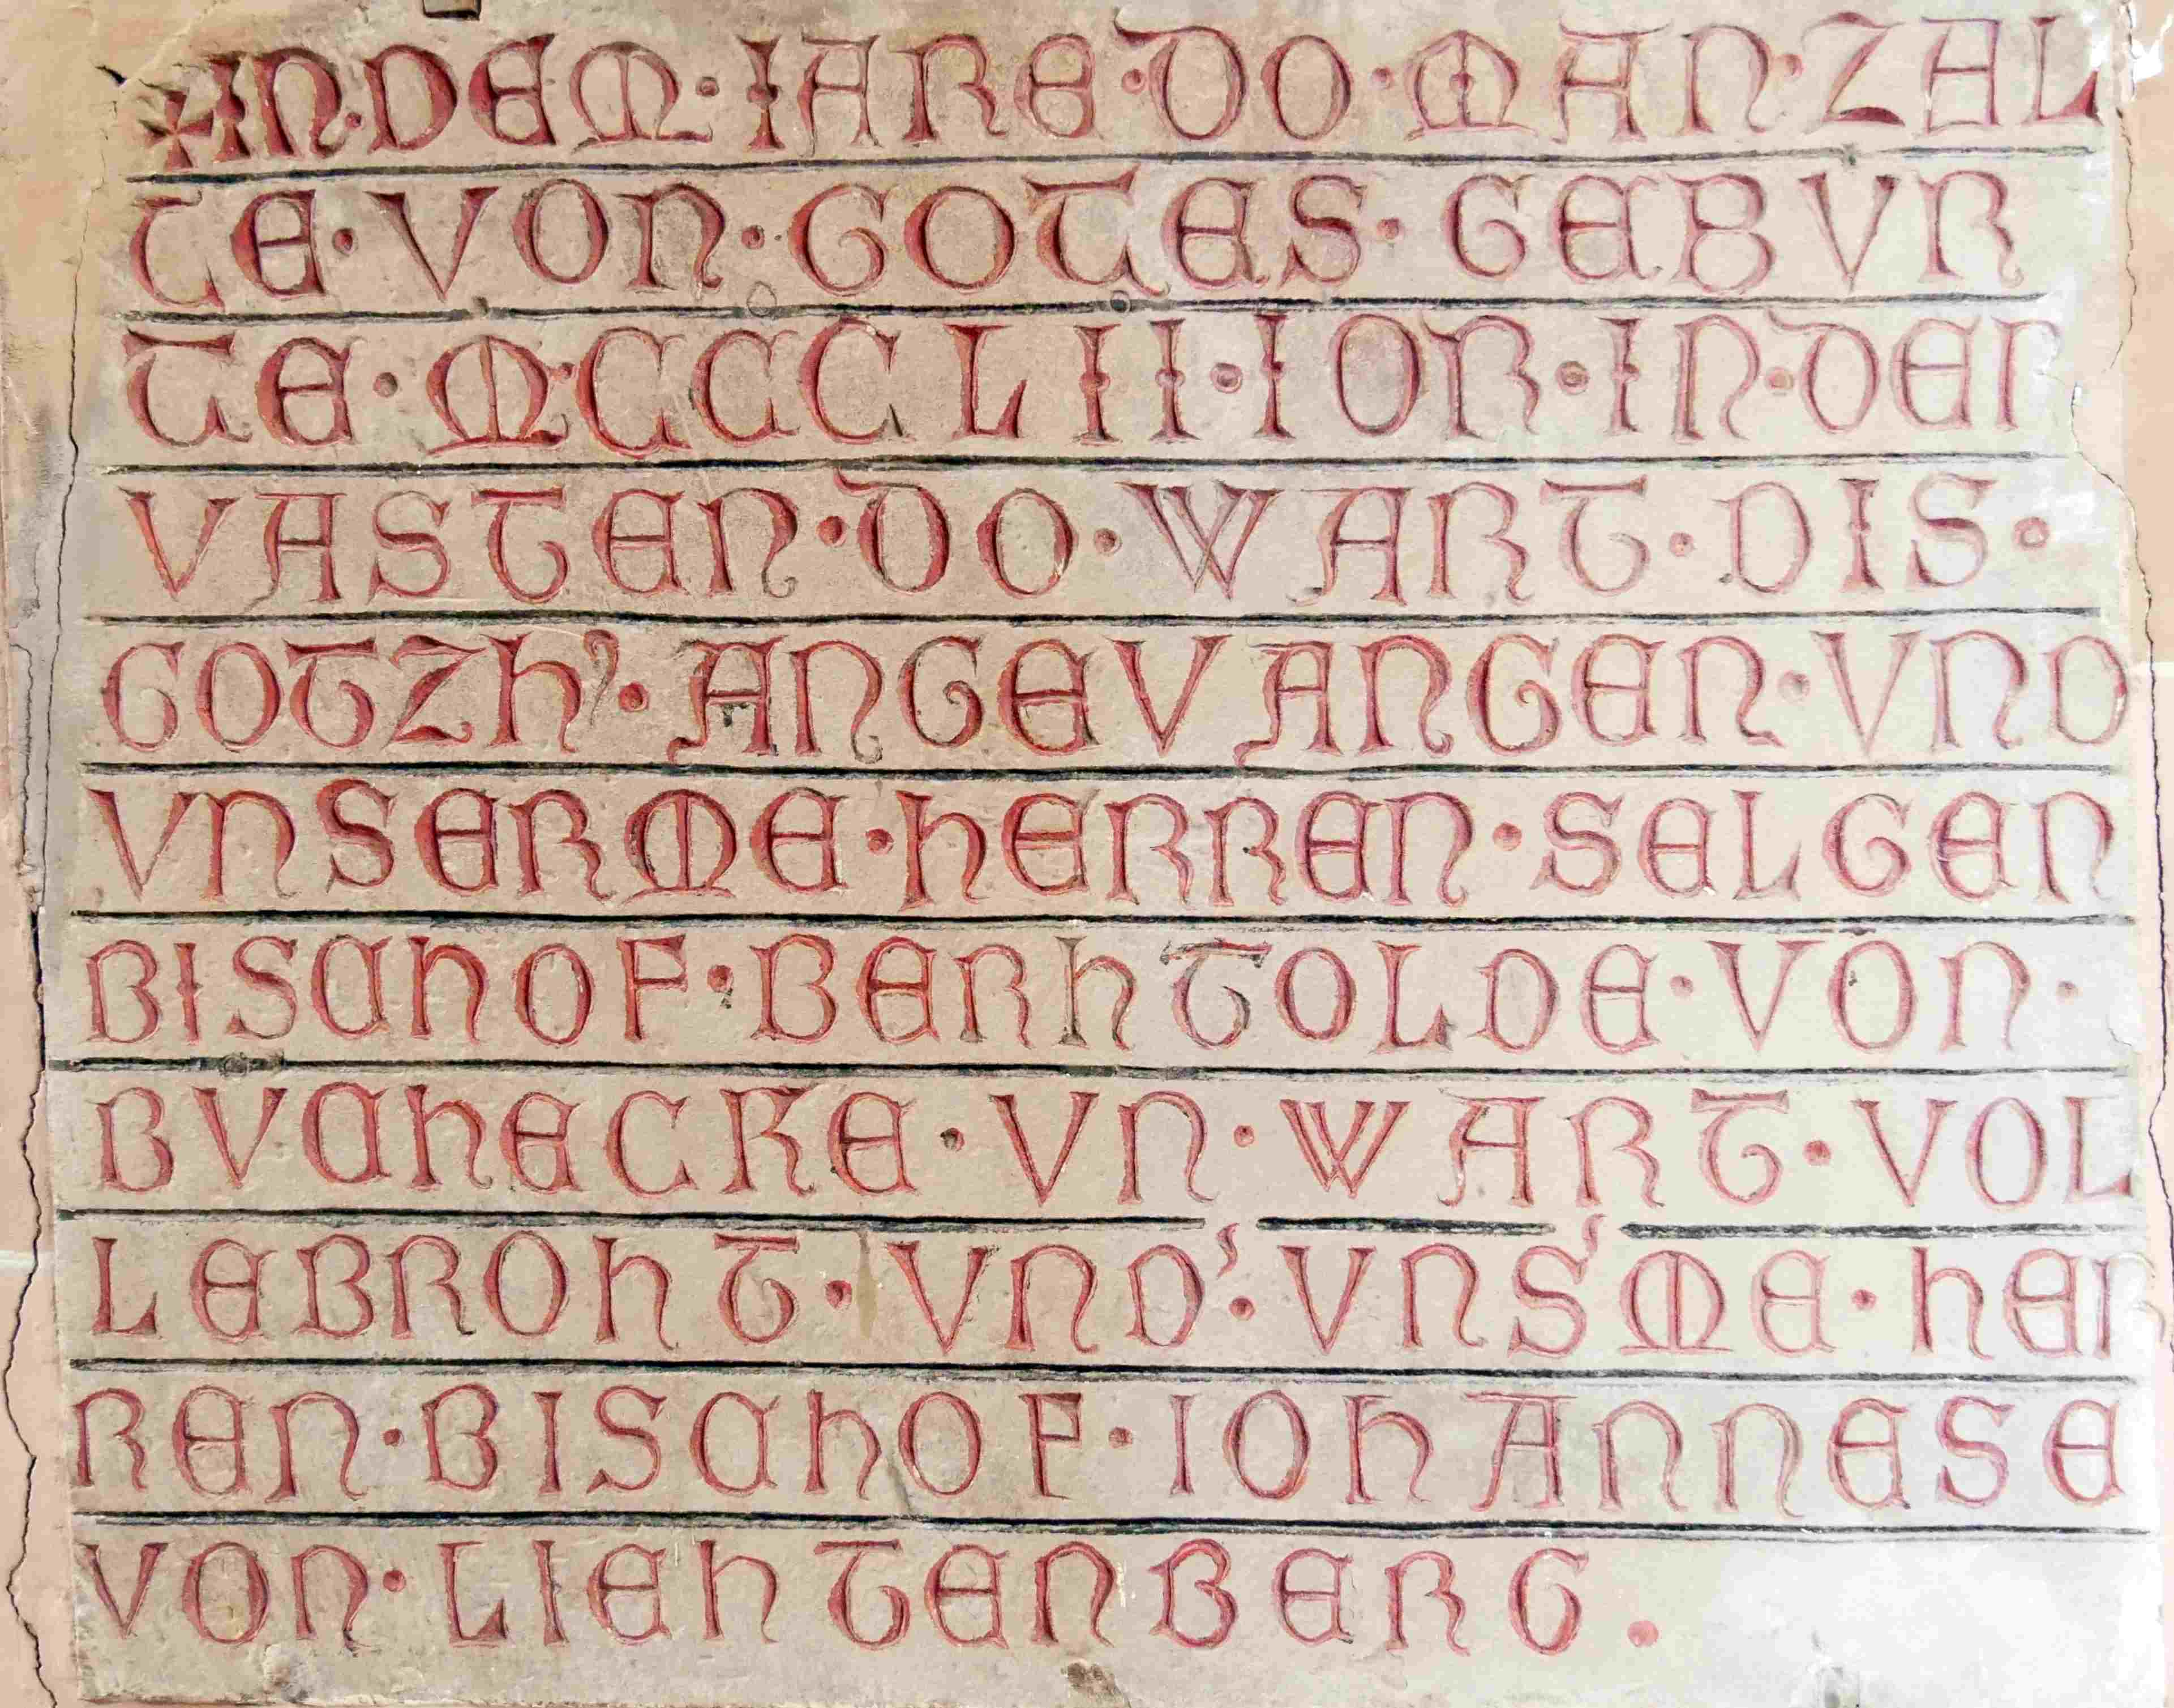 ✠IN·DEM·IARE·DO·MAN·ZAL
TE·VON·GOTES·GEBVR
TE·M·CCCC L II·IOR·IN·DER
VASTEN·DO·WART·DIS·
GOTZH'·ANGEVANGEN·VND
VNSERME·HERREN·SELGEN
BISCHOF·BERHTOLDE·VON·
BVCHECKE·VN·WART·VOL
LEBROHT·VND'·VNS'ME·HER
REN·BISCHOF·IOHANNESE
VON·LIEHTENBERG.